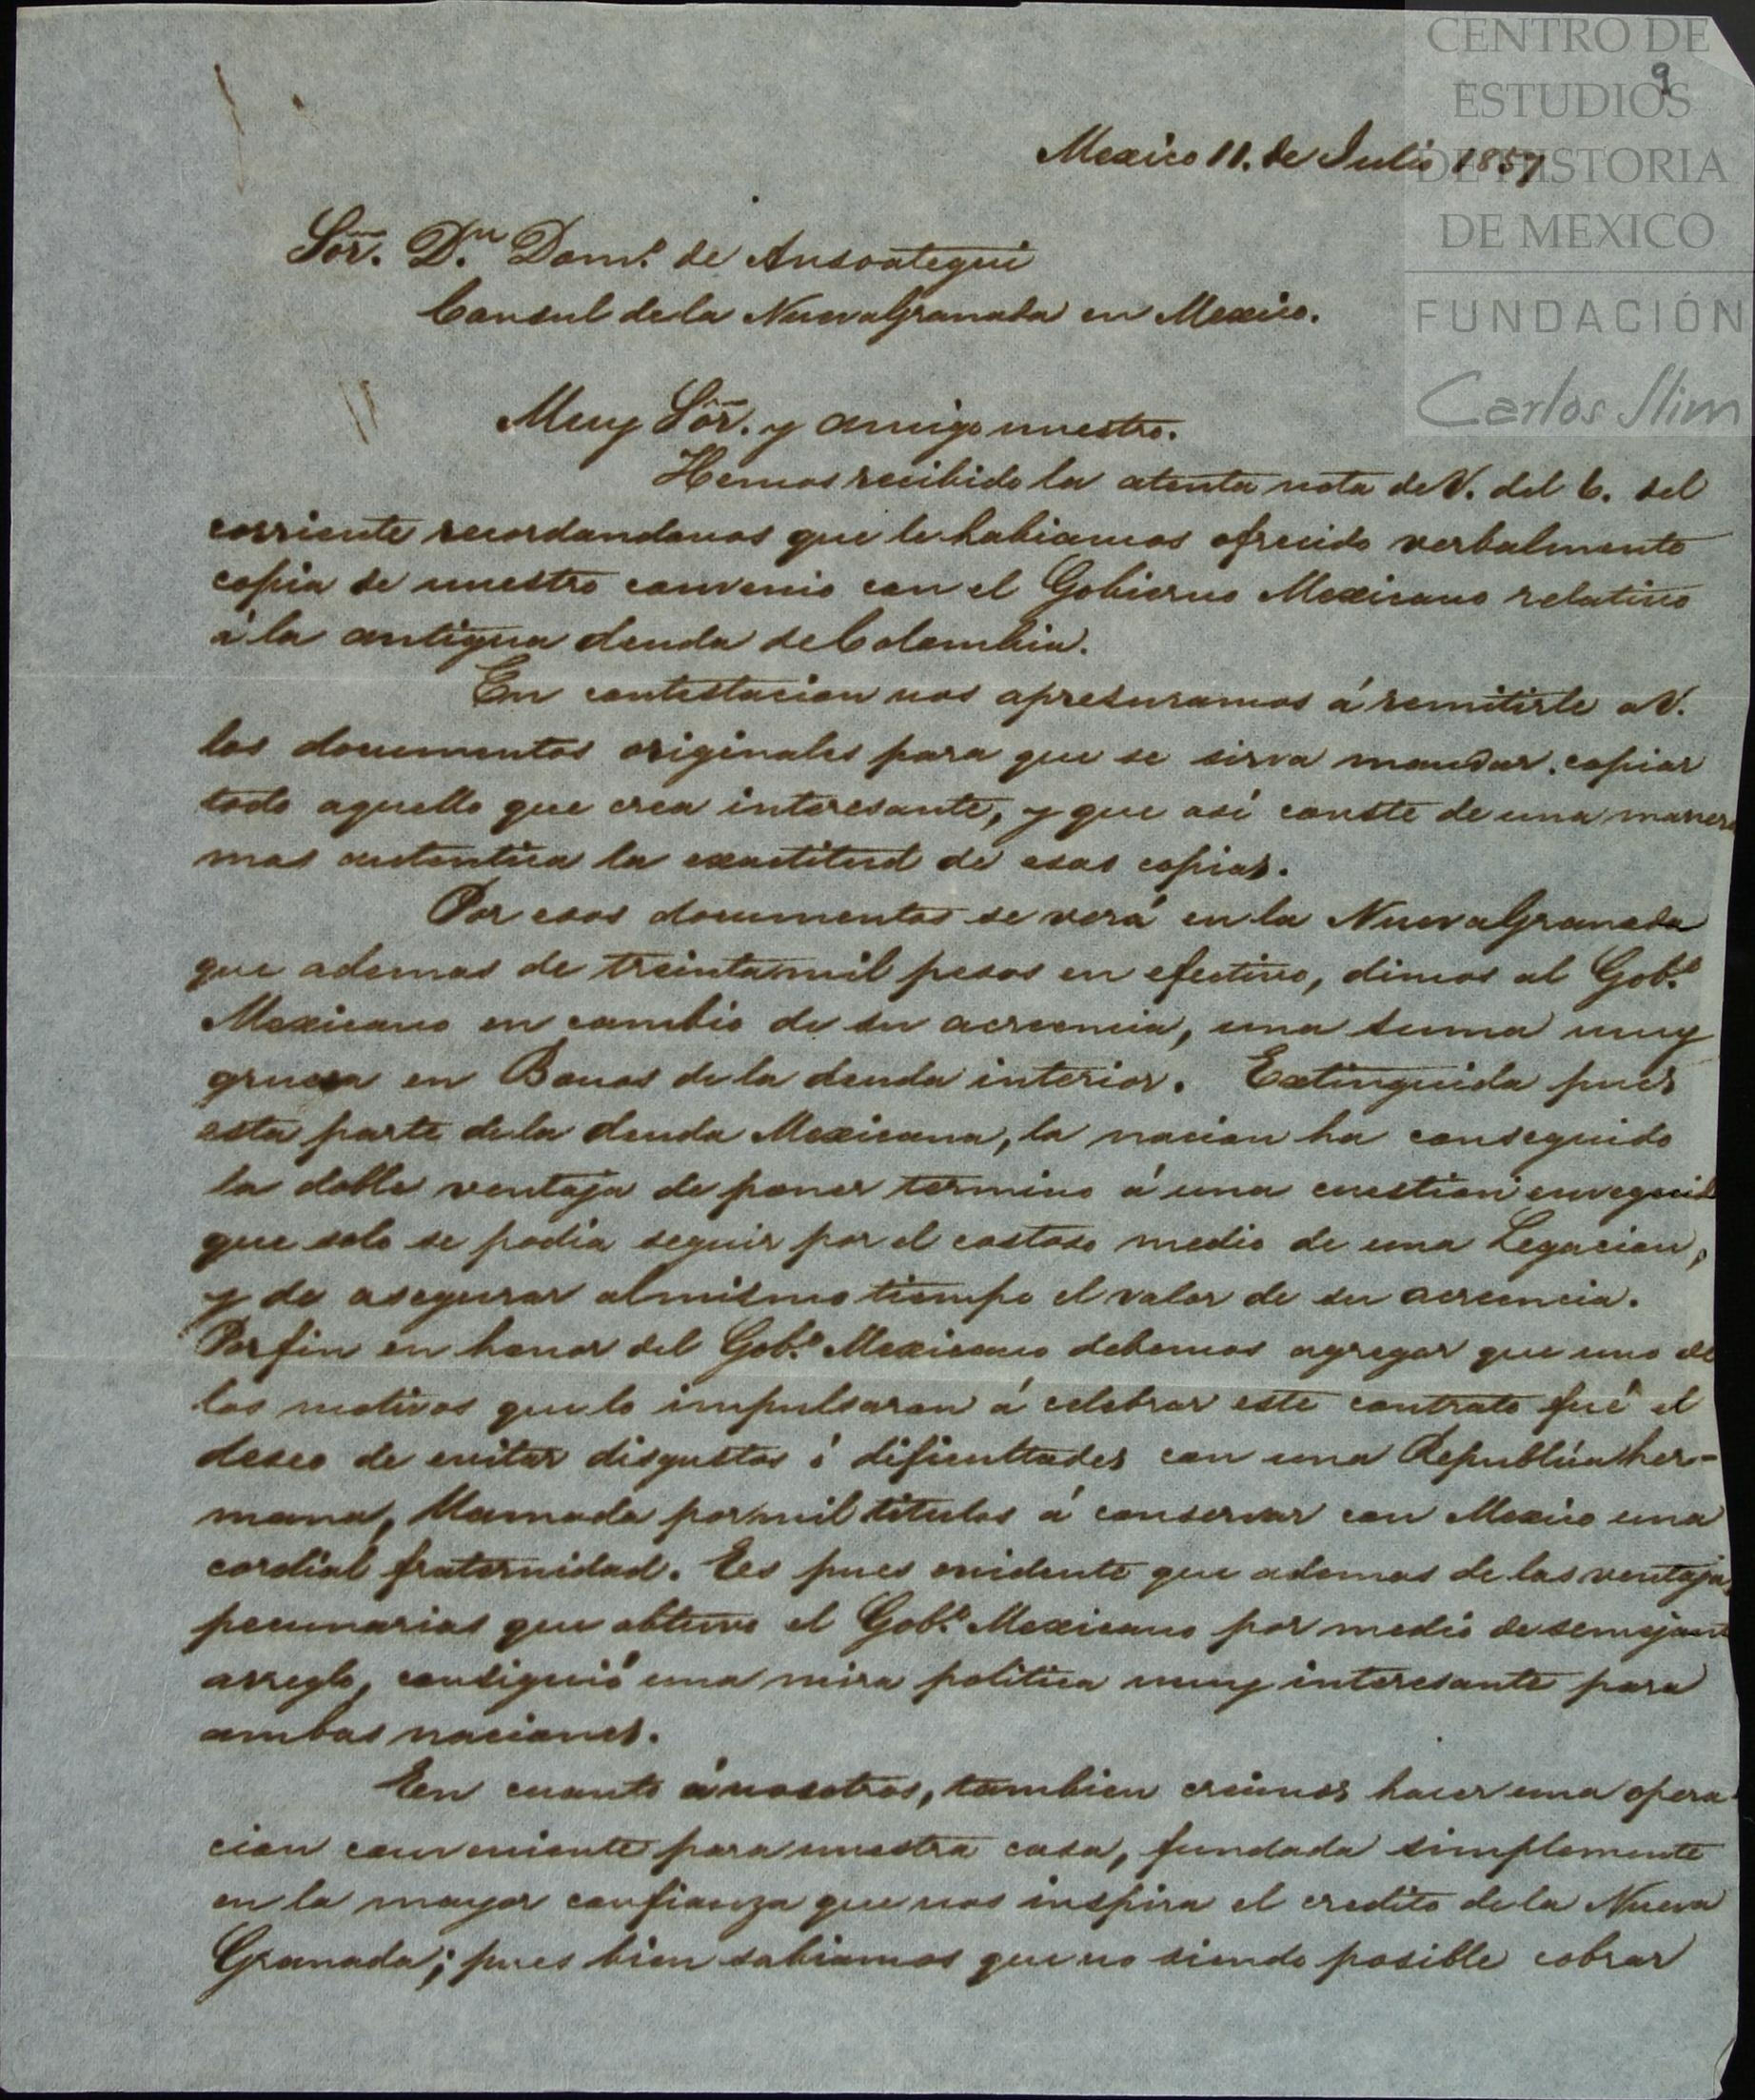 CENTRO DE
ESTUDIOS
DE HISTORIA
DE MEXICO
FUNDACIÓN
Carlos Slim
9
Mexico 11. de Julio 1857
Sõr. D.ⁿ Dom.º de Ansoategui
Consul de la Nueva Granada en Mexico.
Muy Sõr. y amigo nuestro.
Hemos recibido la atenta nota de V. del 6. del
corriente recordandonos que le habiamos ofrecido verbalmente
copia de nuestro convenio con el Gobierno Mexicano relativo
á la antigua deuda de Colombia.
En contestacion nos apresuramos á remitirle a V.
los documentos originales para que se sirva mandar copiar
todo aquello que crea interesante, y que así conste de una manera
mas autentica la exactitud de esas copias.
Por esos documentos se verá en la Nueva Granada
que ademas de treinta mil pesos en efectivo, dimos al Gob.º
Mexicano en cambio de su acreencia, una suma muy
gruesa en Bonos de la deuda interior. Extinguida pues
esta parte de la deuda Mexicana, la nacion ha conseguido
la doble ventaja de poner termino á una cuestion envegecid
que solo se podia seguir por el costoso medio de una Legacion,
y de asegurar al mismo tiempo el valor de su acreencia.
Por fin en honor del Gob.º Mexicano debemos agregar que uno de
los motivos que lo impulsaron á celebrar este contrato fué el
deseo de evitar disgustos ó dificultades con una República her-
mana, llamada por mil titulos á conservar con Mexico una
cordial fraternidad. Es pues evidente que ademas de las ventajas
pecunarias que obtuvo el Gob.º Mexicano por medio de semejante
arreglo, consiguió una mira politica muy interesante para
ambas naciones.
En cuanto á nosotros, tambien creimos hacer una opera
cion conveniente para nuestra casa, fundada simplemente
en la mayor confianza que nos inspira el credito de la Nueva
Granada; pues bien sabiamos que no siendo posible cobrar